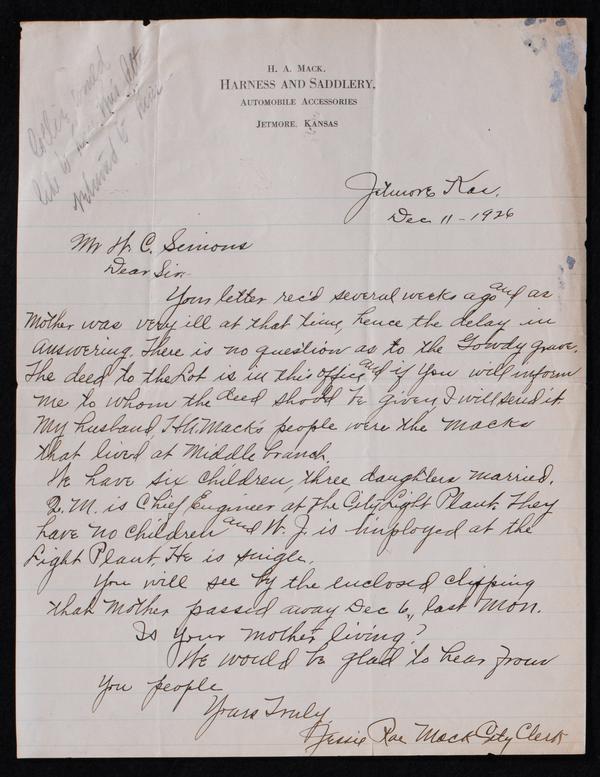 H. A. Mack.
Harness and Saddlery,
Automobile Accessories
Jetmore, Kansas
Jetmore Kas.
Dec 11 - 1926
Mr W. C. Simons
Dear Sir.
Your letter rec'd several weeks ago and as
Mother was very ill at that time, hence the delay in
answering. There is no question as to the Gowdy grave.
The deed to the Lot is in this office and if you will inform
me to whom the deed should be given, I will send it.
My husband, H.A. Mack's people were the Macks
that lived at Middle branch.
We have six children, three daughters married.
Q. M. is Chief Engineer at the City Light Plant. They
have no children and W. J. is Employed at the
Light Plant. He is single.
You will see by the enclosed clipping
that Mother passed away Dec 6, last Mon.
Is your mother living?
We would be glad to hear from
you people
Yours Truly,
Jessie Rae Mack City Clerk
like to have this
returned to